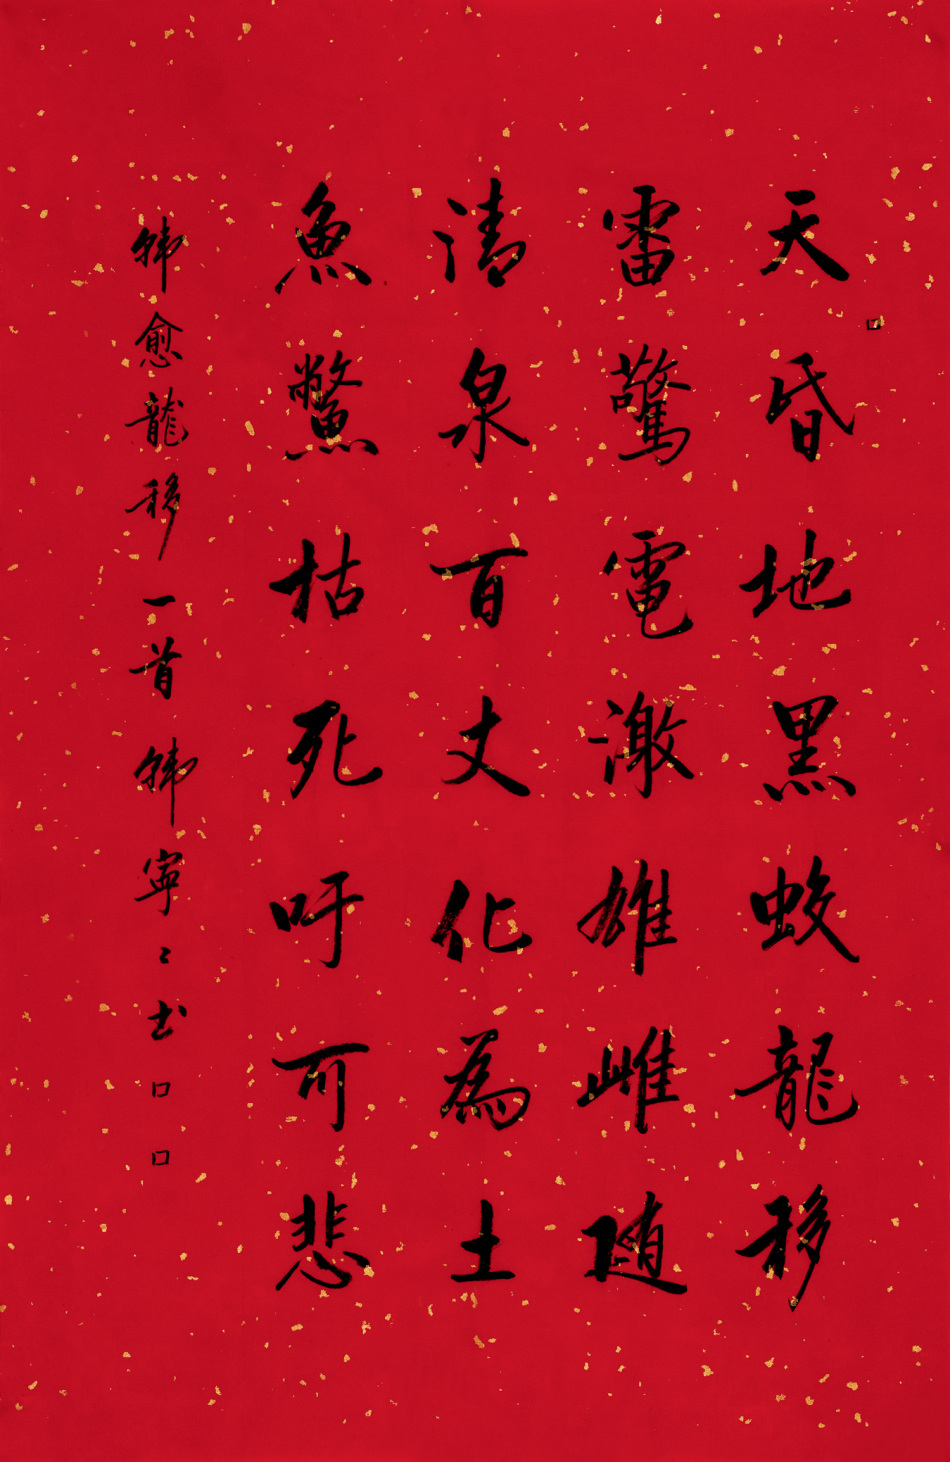 天昏地黑蛟龍移
雷驚電激雄雌随
清泉百丈化為土
魚鱉枯死吁可悲
韓愈龍移一首韓寧〻书